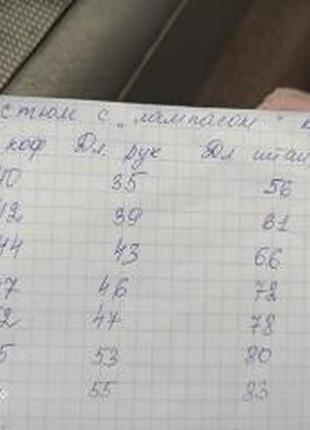 стюм с "лампасом" к
коф Дл. рук Дл штан
40 35 56
42 39 61
44 43 66
47 46 72
2 47 78
5 53 80
55 83